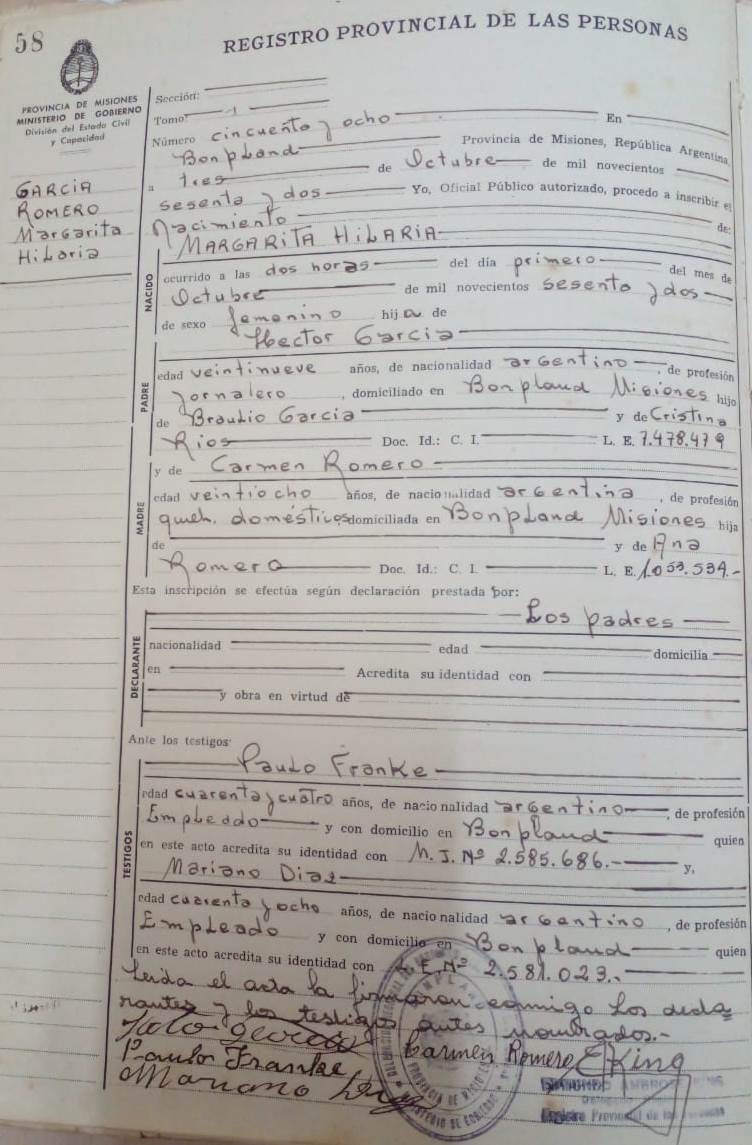 58
REGISTRO PROVINCIAL DE LAS PERSONAS
PROVINCIA DE MISIONES
MINISTERIO DE GOBIERNO
División del Estado Civil
y Capacidad
GARCIA
ROMERO
Margarita
Hilaria
Sección:
Tomo 1
Número cincuenta y ocho En
Bonpland Provincia de Misiones, República Argentina
a tres de Octubre de mil novecientos
sesenta y dos Yo, Oficial Público autorizado, procedo a inscribir el
Nacimiento de:
MARGARITA HILARIA
NACIDO
ocurrido a las dos horas del día primero del mes de
Octubre de mil novecientos sesenta y dos
de sexo femenino hija de
Hector Garcia
PADRE
edad veintinueve años, de nacionalidad argentino, de profesión
Jornalero, domiciliado en Bonpland Misiones hijo
de Braulio Garcia y de Cristina
Rios Doc. Id.: C. I. L. E. 7.478.479
MADRE
y de Carmen Romero
edad veintiocho años, de nacionalidad argentina, de profesión
queh. domésticos domiciliada en Bonpland Misiones hija
de y de Ana
Romero Doc. Id.: C. I. L. E. 1.053.534.-
Esta inscripción se efectúa según declaración prestada por:
Los padres
DECLARANTE
nacionalidad edad domicilia
en Acredita su identidad con
y obra en virtud de
Ante los testigos:
TESTIGOS
Paulo Franke
edad cuarenta y cuatro años, de nacionalidad argentino, de profesión
Empleado y con domicilio en Bonpland quien
en este acto acredita su identidad con M. I. Nº 2.585.686.- y,
Mariano Diaz
edad cuarenta y ocho años, de nacionalidad argentino, de profesión
Empleado y con domicilio en Bonpland quien
en este acto acredita su identidad con L. E. Nº 2.581.023.-
Leida el acta la firmaron conmigo los decla
rantes y los testigos antes nombrados.-
Carmen Romero E King
Paulo Franke
Mariano
PROVINCIA DE MISIONES
MINISTERIO DE GOBIERNO
Registro Provincial de las Personas